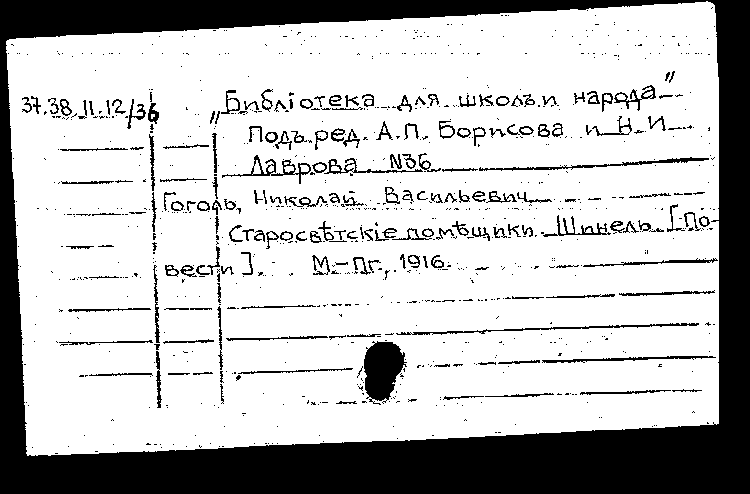 37.38.11.12/36 „Библіотека для школъ и народа"
Подъ ред. А.П. Борисова и Н.И.
Лаврова №36
Гоголь, Николай Васильевич
Старосвѣтскіе помѣщики. Шинель. [По-
вести]. М.-Пг., 1916.